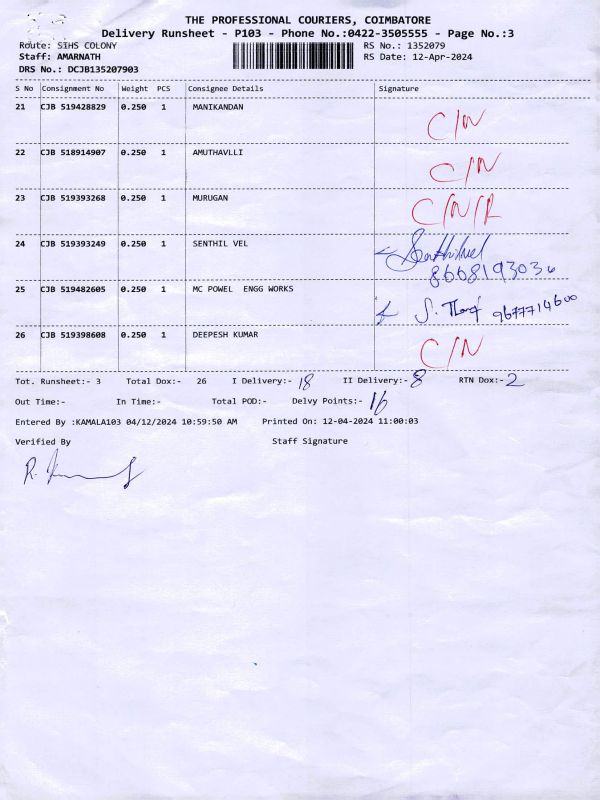 THE PROFESSIONAL COURIERS, COIMBATORE
Delivery Runsheet - P103 - Phone No.:0422-3505555 - Page No.:3
Route: SIHS COLONY RS No.: 1352079
Staff: AMARNATH RS Date: 12-Apr-2024
DRS No.: DCJB135207903
S No Consignment No Weight PCS Consignee Details Signature
21 CJB 519428829 0.250 1 MANIKANDAN C/N
22 CJB 518914907 0.250 1 AMUTHAVLLI C/N
23 CJB 519393268 0.250 1 MURUGAN C/N/R
24 CJB 519393249 0.250 1 SENTHIL VEL Senthilvel
8668193036
25 CJB 519482605 0.250 1 MC POWEL ENGG WORKS S. 9677714600
26 CJB 519398608 0.250 1 DEEPESH KUMAR C/N
Tot. Runsheet:- 3 Total Dox:- 26 I Delivery:- 18 II Delivery:- 8 RTN Dox:- 2
Out Time:- In Time:- Total POD:- Delvy Points:- 16
Entered By :KAMALA103 04/12/2024 10:59:50 AM Printed On: 12-04-2024 11:00:03
Verified By Staff Signature
R.